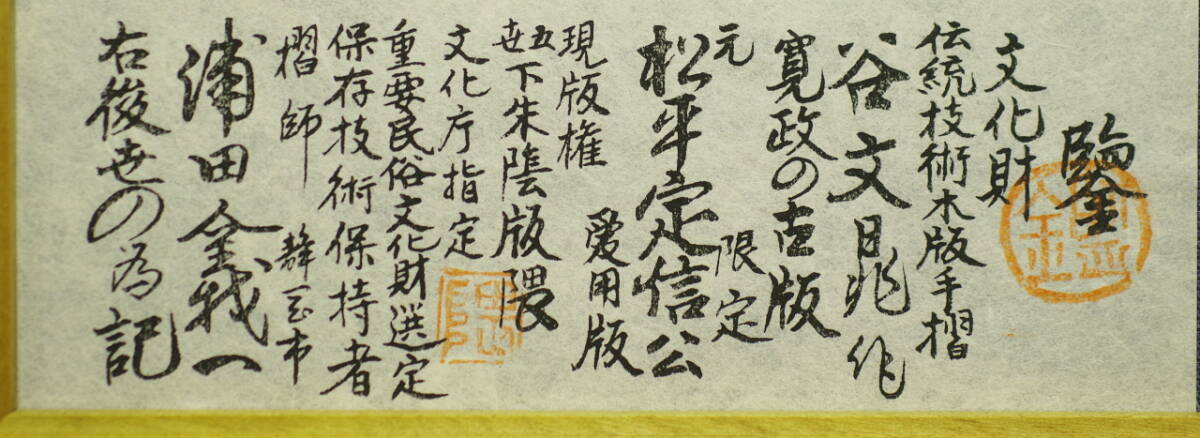 鑒
文化財
伝統技術木版手摺
谷文晁作
寛政の古版
限定
元
松平定信公
愛用版
現版権
五世下朱陰版隈
文化庁指定
重要民俗文化財選定
保存技術保持者
摺師
浦田金我一
右後世の為記